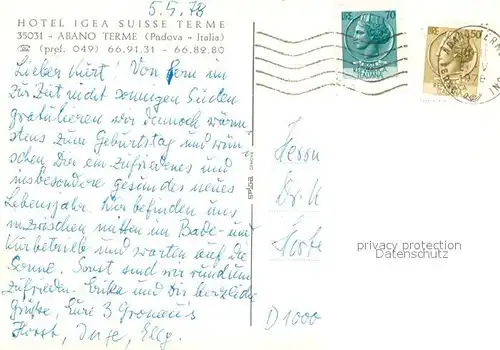 5.5.78
HOTEL IGEA SUISSE TERME
35031 - ABANO TERME (Padova - Italia)
☎ (pref. 049) 66.91.31 - 66.82.80
Lieber Kurt! Von fern im
zur Zeit nicht sonnigen Süden
gratulieren wir dennoch wärm-
stens zum Geburtstag und wün-
schen Dir ein zufriedenes und
insbesondere gesundes neues
Lebensjahr. Wir befinden uns
inzwischen mitten im Bade- und
Kurbetriebe und warten auf die
Sonne. Sonst sind wir rundum
zufrieden. Erika und Dir herzliche
Grüße, Eure 3
Horst,
LIRE 70
LIRE 50
ABANO TERME
Herrn
Dr. K
D 1000
privacy protection
Datenschutz